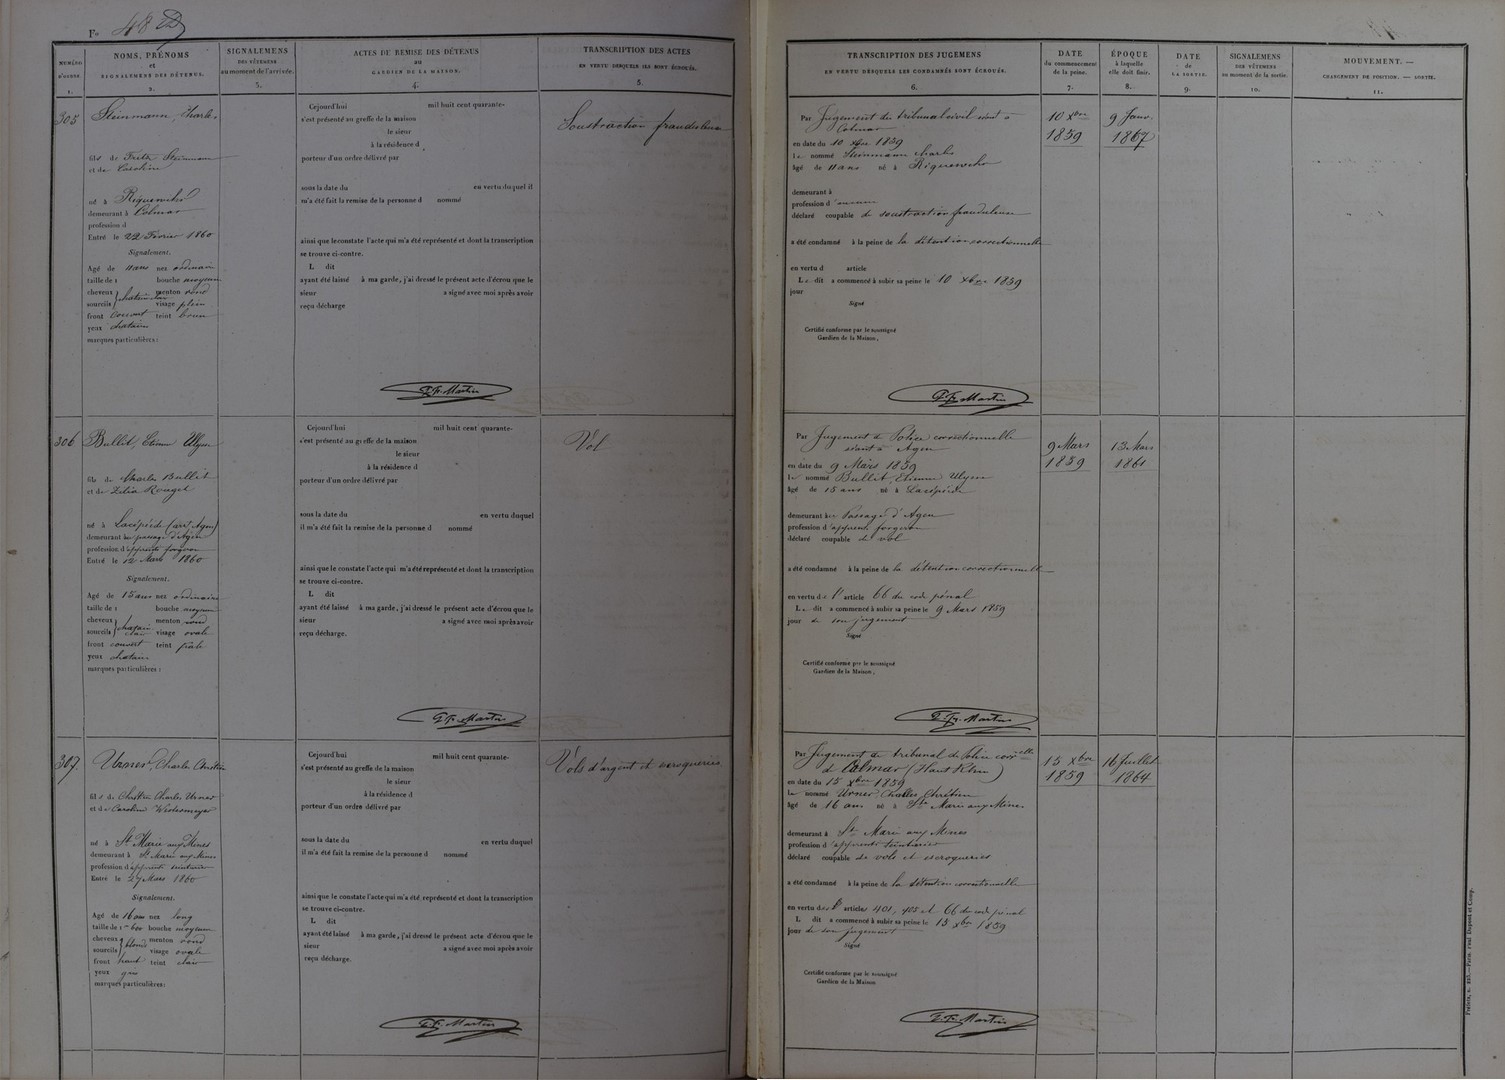 Fo 48
NUMÉRO
D'ORDRE
1.
NOMS, PRÉNOMS
et
SIGNALEMENS DES DÉTENUS.
2.
SIGNALEMENS
DES VÊTEMENS
au moment de l'arrivée.
3.
ACTES DE REMISE DES DÉTENUS
au
GARDIEN DE LA MAISON.
4.
TRANSCRIPTION DES ACTES
EN VERTU DESQUELS ILS SONT ÉCROUÉS.
5.
305
Steinmann, Charles
fils de Fritz Steinmann
et de Caroline
né à Riquewihr
demeurant à Colmar
profession d
Entré le 22 Février 1860
Signalement.
Agé de 11 ans nez ordinaire
taille de 1 bouche moyenne
cheveux menton rond
sourcils chatain visage plein
front couvert teint brun
yeux chatains
marques particulières :
Cejourd'hui mil huit cent quarante-
s'est présenté au greffe de la maison
le sieur
à la résidence d
porteur d'un ordre délivré par
sous la date du en vertu duquel il
m'a été fait la remise de la personne d nommé
ainsi que le constate l'acte qui m'a été représenté et dont la transcription
se trouve ci-contre.
L dit
ayant été laissé à ma garde, j'ai dressé le présent acte d'écrou que le
sieur a signé avec moi après avoir
reçu décharge
Martin
Soustraction frauduleuse
306
Bullit, Etienne Ulysse
fils de Charles Bullit
et de Zélia Rouget
né à Lacépède (arr. Agen)
demeurant au passage d'Agen
profession d'apprenti forgeron
Entré le 12 Mars 1860
Signalement.
Agé de 15 ans nez ordinaire
taille de 1 bouche moyenne
cheveux menton rond
sourcils chatain clair visage ovale
front couvert teint pâle
yeux chatain
marques particulières :
Cejourd'hui mil huit cent quarante-
s'est présenté au greffe de la maison
le sieur
à la résidence d
porteur d'un ordre délivré par
sous la date du en vertu duquel
il m'a été fait la remise de la personne d nommé
ainsi que le constate l'acte qui m'a été représenté et dont la transcription
se trouve ci-contre.
L dit
ayant été laissé à ma garde, j'ai dressé le présent acte d'écrou que le
sieur a signé avec moi après avoir
reçu décharge.
Martin
Vol
307
Urner, Charles Chrétien
fils de Chrétien Charles Urner
et de Caroline
né à Ste Marie aux Mines
demeurant à Ste Marie aux Mines
profession d'apprenti teinturier
Entré le 27 Mars 1860
Signalement.
Agé de 16 ans nez long
taille de 1m 600 bouche moyenne
cheveux menton rond
sourcils blond visage ovale
front haut teint clair
yeux gris
marques particulières:
Cejourd'hui mil huit cent quarante-
s'est présenté au greffe de la maison
le sieur
à la résidence d
porteur d'un ordre délivré par
sous la date du en vertu duquel
il m'a été fait la remise de la personne d nommé
ainsi que le constate l'acte qui m'a été représenté et dont la transcription
se trouve ci-contre.
L dit
ayant été laissé à ma garde, j'ai dressé le présent acte d'écrou que le
sieur a signé avec moi après avoir
reçu décharge.
Martin
Vols d'argent et escroqueries
TRANSCRIPTION DES JUGEMENS
EN VERTU DESQUELS LES CONDAMNÉS SONT ÉCROUÉS.
6.
DATE
du commencement
de la peine.
7.
ÉPOQUE
à laquelle
elle doit finir.
8.
DATE
de
LA SORTIE.
9.
SIGNALEMENS
DES VÊTEMENS
au moment de la sortie.
10.
MOUVEMENT. —
CHANGEMENT DE POSITION. — SORTIE.
11.
Par Jugement du tribunal civil séant à
Colmar
en date du 10 xbre 1859
Le nommé Steinmann Charles
âgé de 11 ans né à Riquewihr
demeurant à
profession d'aucune
déclaré coupable de soustraction frauduleuse
a été condamné à la peine de la détention correctionnelle
en vertu d article
Le dit a commencé à subir sa peine le 10 xbre 1859
jour
Signé
Certifié conforme par le soussigné
Gardien de la Maison,
Martin
10 xbre
1859
9 Janv.
1867
Par Jugement de Police correctionnelle
séant à Agen
en date du 9 Mars 1859
Le nommé Bullit, Etienne Ulysse
âgé de 15 ans né à Lacépède
demeurant au Passage d'Agen
profession d'apprenti forgeron
déclaré coupable de vol
a été condamné à la peine de la détention correctionnelle
en vertu de l' article 66 du code pénal
Le dit a commencé à subir sa peine le 9 Mars 1859
jour de son jugement
Signé
Certifié conforme par le soussigné
Gardien de la Maison,
Martin
9 Mars
1859
13 Mars
1861
Par Jugement du tribunal de Police correlle
de Colmar (Haut Rhin)
en date du 15 xbre 1859
Le nommé Urner, Charles Chrétien
âgé de 16 ans né à Ste Marie aux Mines
demeurant à Ste Marie aux Mines
profession d'apprenti teinturier
déclaré coupable de vols et escroqueries
a été condamné à la peine de la détention correctionnelle
en vertu des articles 401, 405 et 66 du code pénal
L dit a commencé à subir sa peine le 15 xbre 1859
jour de son jugement
Signé
Certifié conforme par le soussigné
Gardien de la Maison
Martin
15 xbre
1859
16 Juillet
1864